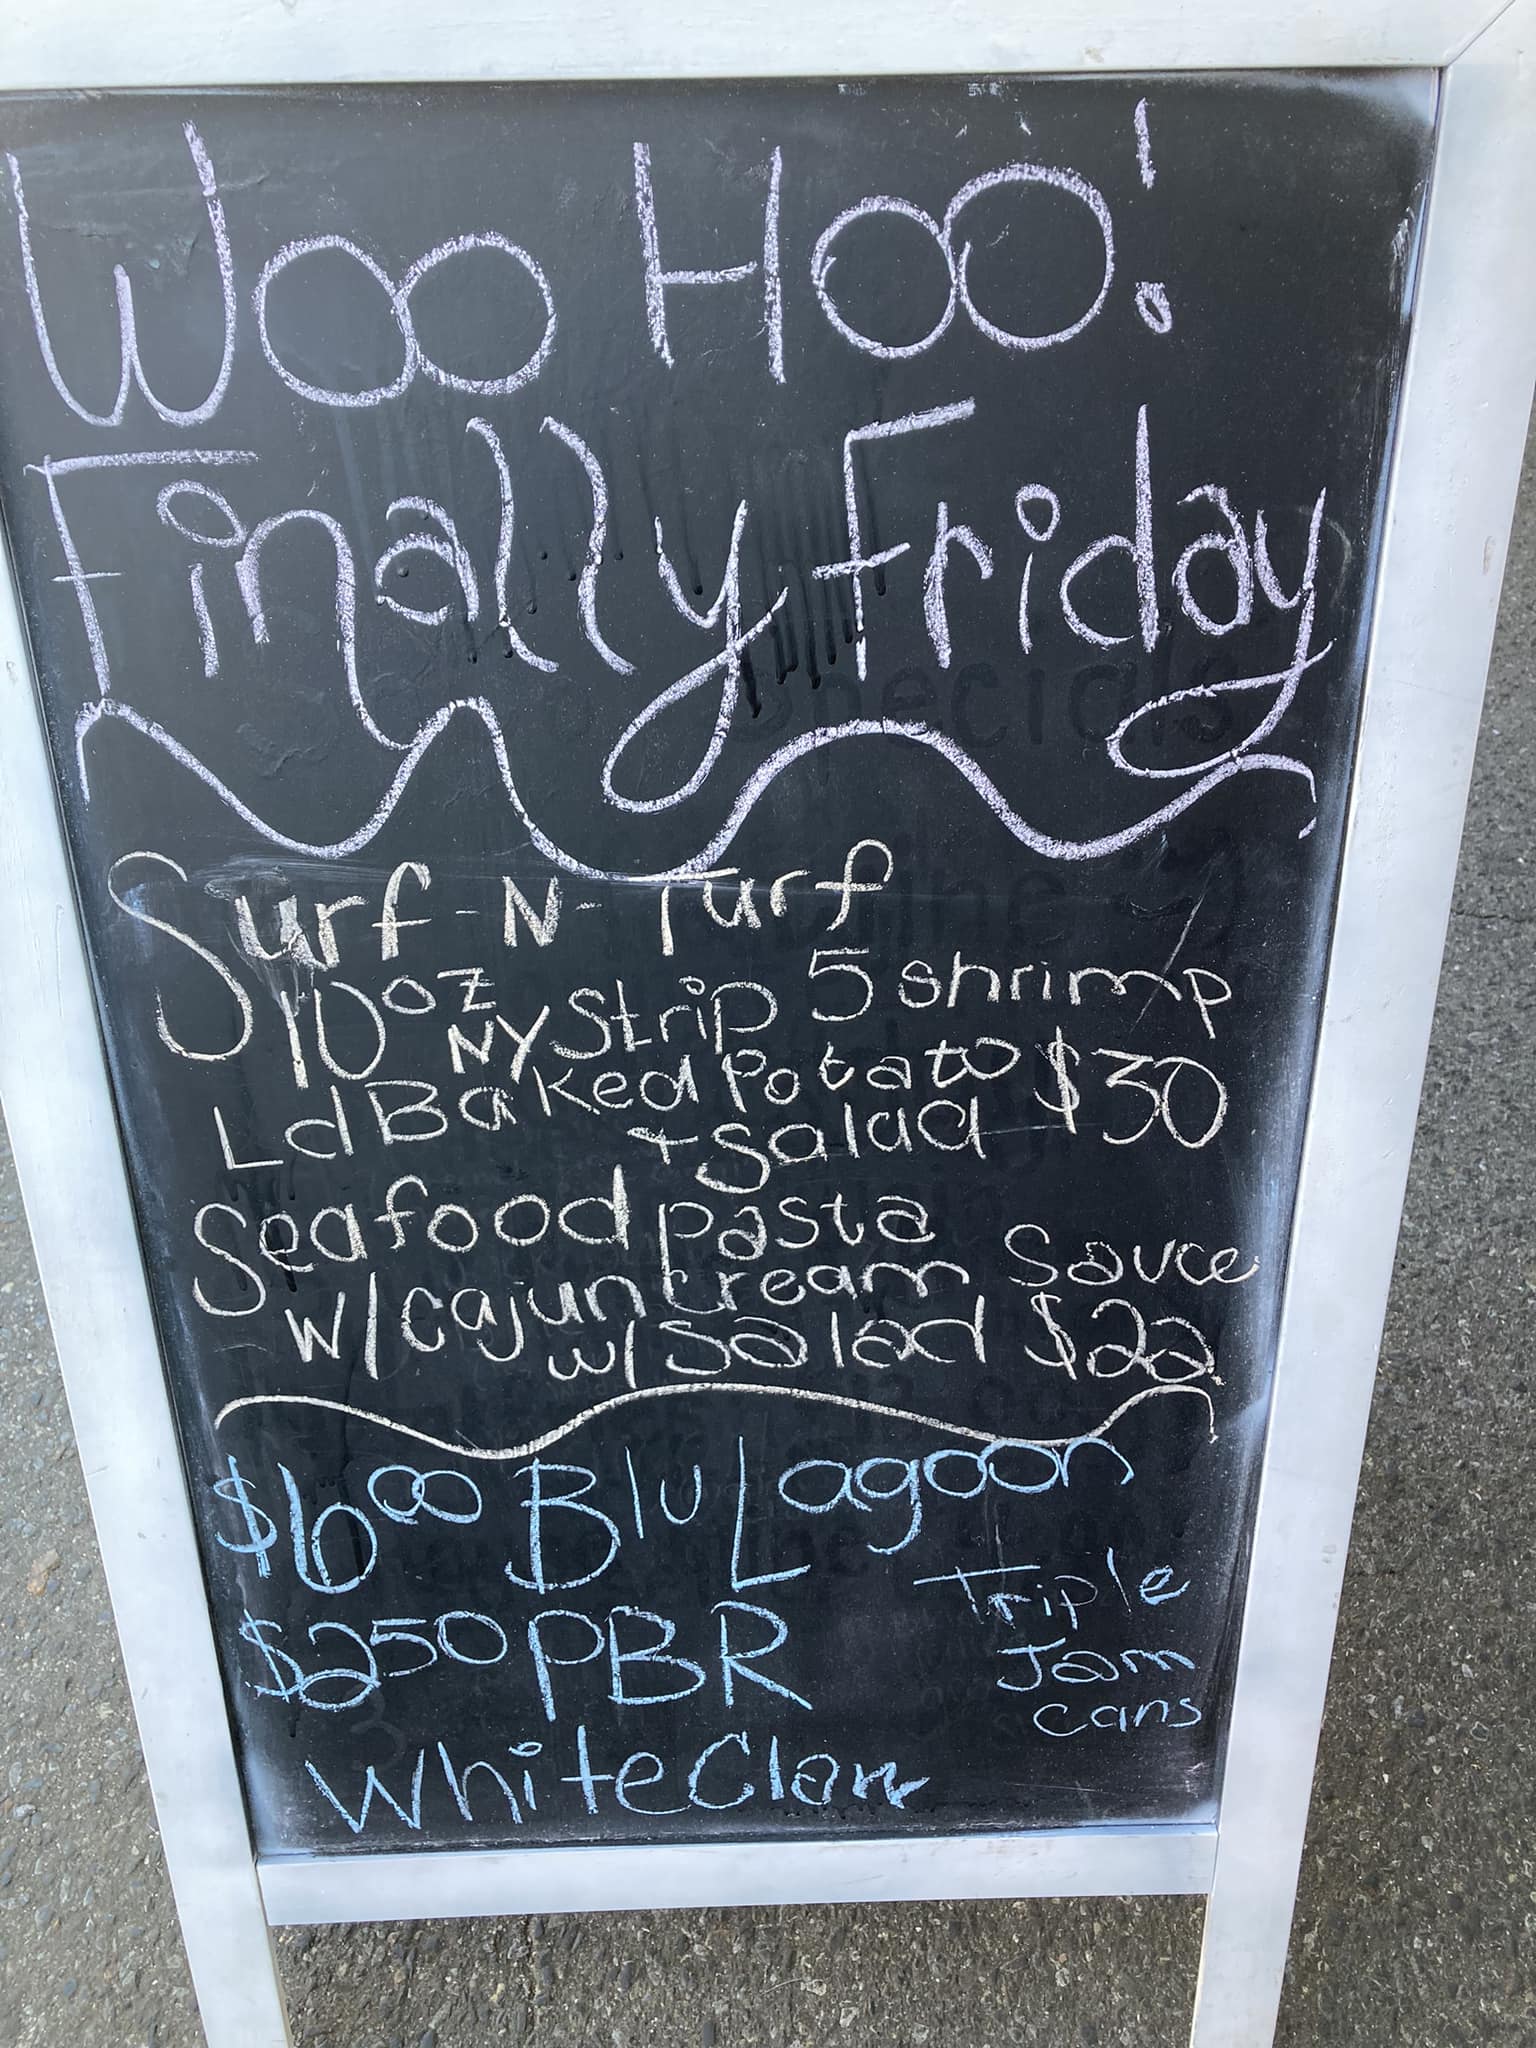 Woo Hoo!
Finally Friday
Surf-N-Turf
10oz NY Strip 5 shrimp
Ld Baked Potato $30
+ Salad
Seafood pasta
w/cajun cream Sauce
w/salad $22
$6.00 Blu Lagoon
$250 PBR
Triple
Jam
cans
White Claw